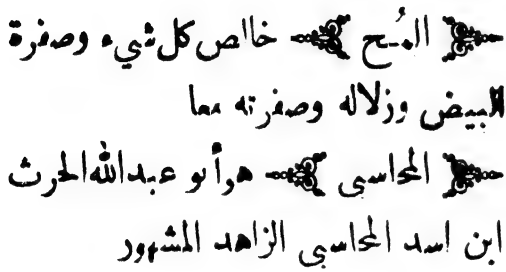 المُح خالص كل شيء وصفرة
البيض وزلاله وصفرته معا
المحاسبى هو أبو عبدالله الحرث
ابن اسد المحاسبى الزاهد المشهور